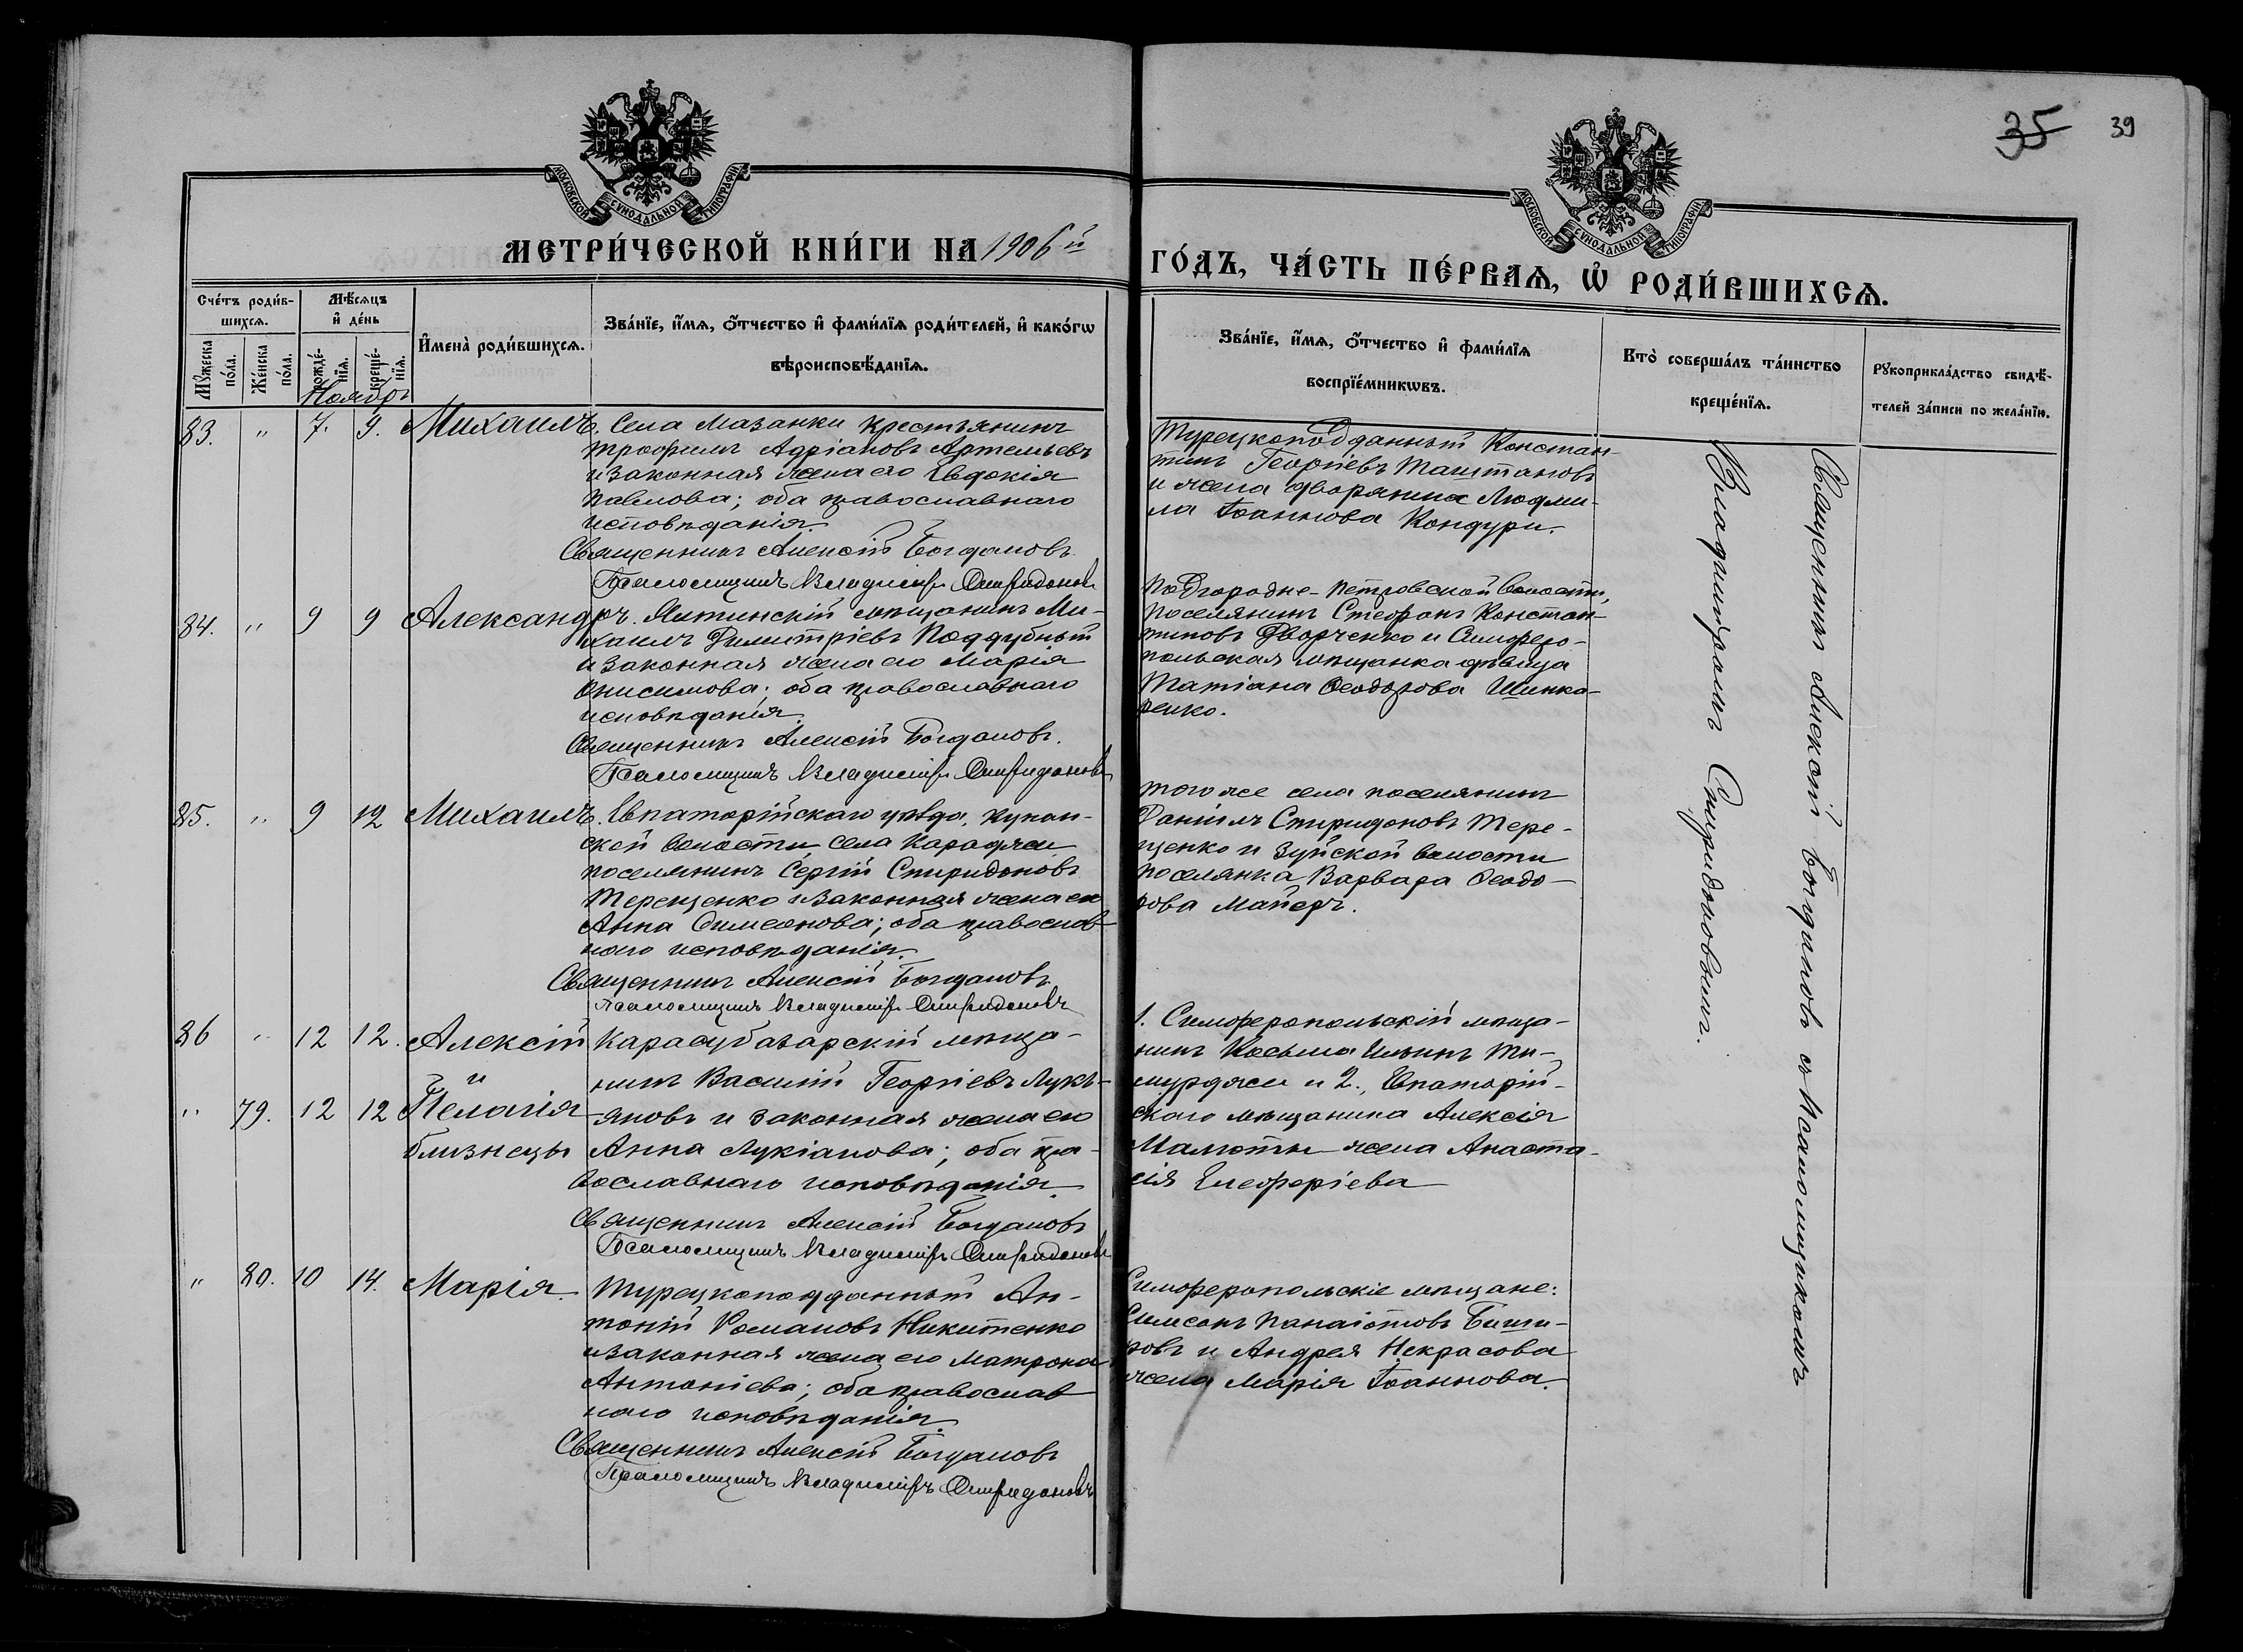 35 39
МОСКОВСКОЙ СѴНОДАЛЬНОЙ ТИПОГРАФІИ
МОСКОВСКОЙ СѴНОДАЛЬНОЙ ТИПОГРАФІИ
МЕТРИ́ЧЕСКОЙ КНИ́ГИ НА 1906 й
ГО́ДЪ, ЧА́СТЬ ПЕ́РВАѦ, Ѿ РОДИ́ВШИХСѦ.
Сче́тъ роди́в-
шихсѧ.
Мꙋ́жеска
по́ла.
Же́нска
по́ла.
Мѣ́сѧцъ
и҆ де́нь
рожде́-
нїѧ.
креще́-
нїѧ.
И҆мена̀ роди́вшихсѧ.
Зва́нїе, и҆́мѧ, ѻ҆́тчество и҆ фами́лїѧ роди́телей, и҆ како́гѡ
вѣроисповѣ́данїѧ.
Зва́нїе, и҆́мѧ, ѻ҆́тчество и҆ фами́лїѧ
воспрїе́мникѡвъ.
Кто̀ соверша́лъ та́инство
креще́нїѧ.
Рꙋкоприкла́дство свидѣ́-
телей за́писи по жела́нїю.
Ноябрь
83. " 7. 9. Михаилъ. Села Мазанки крестьянинъ
Трофимъ Адріановъ Артемьевъ
и законная жена его Евдокія
Павлова; оба православнаго
исповѣданія.
Священникъ Алексій Богдановъ
Псаломщикъ Владиміръ Спиридоновъ
Турецкоподданный Констан-
тинъ Георгіевъ Таштановъ
и жена дворянина Людми-
ла Іоаннова Кондури.
84. " 9 9 Александръ. Ялтинскій мѣщанинъ Ми-
хаилъ Димитріевъ Поддубный
и законная жена его Марія
Онисимова; оба православнаго
исповѣданія.
Священникъ Алексій Богдановъ.
Псаломщикъ Владиміръ Спиридоновъ
Подгородне-Петровской волости,
поселянинъ Стефанъ Констан-
тиновъ Дворченко и Симферо-
польская мѣщанка дѣвица
Татіана Ѳеодорова Шинка-
ренко.
85. " 9 12 Михаилъ. Евпаторійскаго уѣзда,
ской волости села Караджи
поселянинъ Сергій Спиридоновъ
Терещенко и законная жена его
Анна Симеонова; оба православ-
наго исповѣданія.
Священникъ Алексій Богдановъ
Псаломщикъ Владиміръ Спиридоновъ
того же села поселянинъ
Даніилъ Спиридоновъ Тере-
щенко и Зуйской волости
поселянка Варвара Ѳеодо-
рова Майеръ.
86 " 12 12. Алексій Карасубазарскій мѣща-
и нинъ Василій Георгіевъ Лукъ-
" 79. 12 12 Пелагія яновъ и законная жена его
близнецы Анна Лукіанова; оба пра-
вославнаго исповѣданія.
Священникъ Алексій Богдановъ
Псаломщикъ Владиміръ Спиридоновъ
1. Симферопольскій мѣща-
нинъ Косьма Ильинъ Ти-
мурджи и 2., Евпаторій-
скаго мѣщанина Алексія
Малюты жена Анаста-
сія Елеѳеріева
" 80. 10 14. Марія. Турецкоподданный Ан-
тоній Романовъ Никитенко
и законная жена его Матрона
Антоніева; оба православ
наго исповѣданія.
Священникъ Алексій Богдановъ
Псаломщикъ Владиміръ Спиридоновъ
Симферопольскіе мѣщане:
Симеонъ Панаіотовъ Биши-
ровъ и Андрея Некрасова
жена Марія Іоаннова.
Священникъ Алексій Богдановъ съ Псаломщикомъ
Владиміромъ Спиридоновымъ.